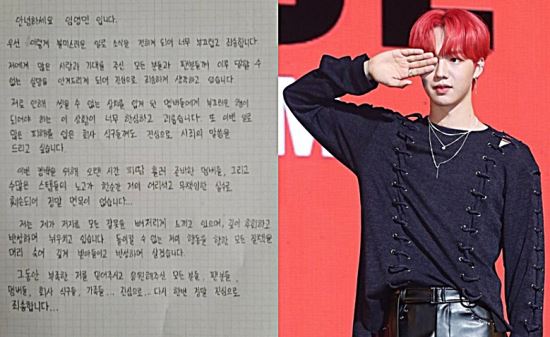 안녕하세요 임영민 입니다.
우선 이렇게 불미스러운 일로 소식을 전하게 되어 너무 부끄럽고 죄송합니다.
저에게 많은 사랑과 기대를 주신 모든 분들과 팬분들께 이루 말할 수
없는 실망을 안겨드리게 되어 진심으로 죄송하게 생각하고 있습니다.
저로 인해 씻을 수 없는 상처를 입게 된 멤버들에게 부끄러운 형이
되어야 하는 이 상황이 너무 참담하고 괴롭습니다. 또 이번 일로
많은 피해를 입은 회사 식구들께도 진심으로 사죄의 말씀을
드리고 싶습니다.
이번 컴백을 위해 오랜 시간 피땀 흘려 준비한 멤버들, 그리고
수많은 스탭들의 노고가 한순간 저의 어리석고 무책임한 실수로
훼손되어 정말 면목이 없습니다...
저는 제가 저지른 모든 잘못을 뼈저리게 느끼고 있으며, 깊이 후회하고
반성하며 뉘우치고 있습니다. 돌이킬 수 없는 저의 행동을 향한 모든 질책을
머리 숙여 깊게 받아들이고 반성하며 살겠습니다.
그동안 부족한 저를 믿어주시고 응원해주신 모든 분들, 팬분들,
멤버들, 회사 식구들, 가족들... 진심으로... 다시 한번 정말 진심으로
죄송합니다...